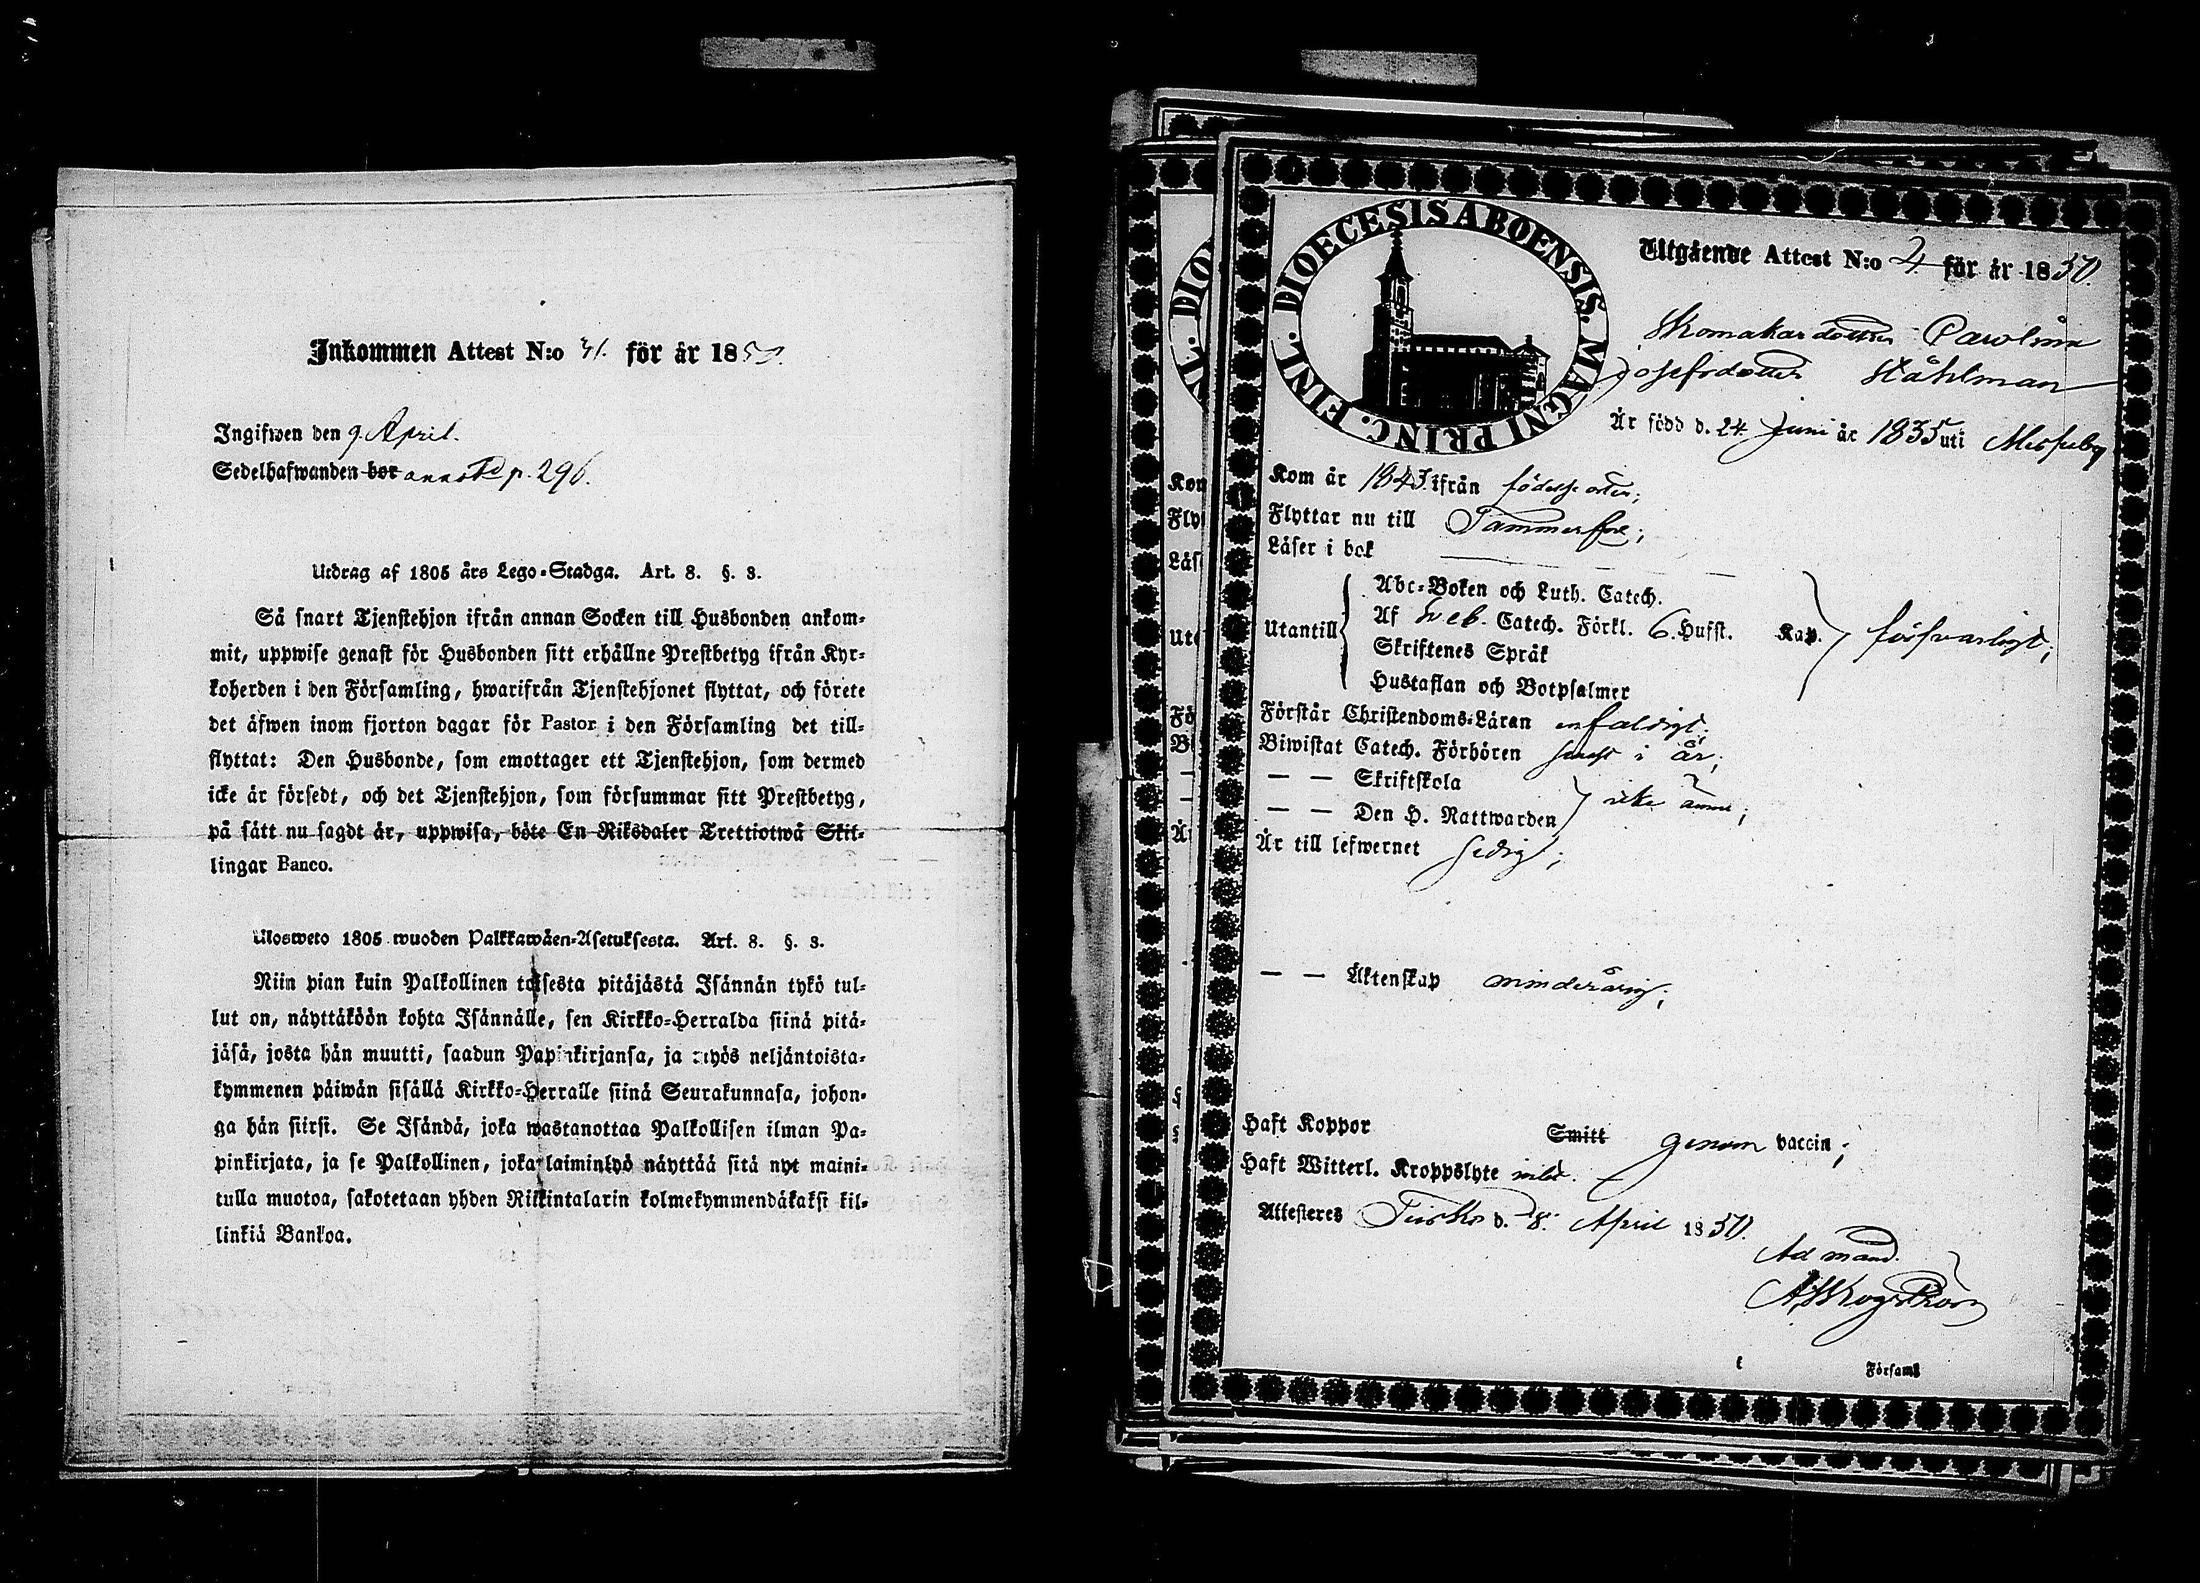 Inkommen Attest N:o 31. för år 1850.
Ingifwen den 9. April.
Sedelhafwanden bor annoterad p. 296.
Utdrag af 1805 års Lego-Stadga. Art. 8. §. 3.
Så snart Tjenstehjon ifrån annan Socken till Husbonden ankom-
mit, uppwise genast för Husbonden sitt erhållne Prestbetyg ifrån Kyr-
koherden i den Församling, hwarifrån Tjenstehjonet flyttat, och förete
det äfwen inom fjorton dagar för Pastor i den Församling det till-
flyttat: Den Husbonde, som emottager ett Tjenstehjon, som dermed
icke är försedt, och det Tjenstehjon, som försummar sitt Prestbetyg,
på sätt nu sagdt är, uppwisa, böte En Riksdaler Trettiotwå Skil-
lingar Banco.
Ulosweto 1805 wuoden Palkkawäen-Asetuksesta. Art. 8. §. 3.
Niin pian kuin Palkollinen toisesta pitäjästä Isännän tykö tul-
lut on, näyttäköön kohta Isännälle, sen Kirkko-Herralda siinä pitä-
jäsä, josta hän muutti, saadun Papinkirjansa, ja myös neljäntoista-
kymmenen päiwän sisällä Kirkko-Herralle siinä Seurakunnasa, johon-
ga hän siirsi. Se Isändä, joka wastanottaa Palkollisen ilman Pa-
pinkirjata, ja se Palkollinen, joka laiminlyö näyttää sitä nyt maini-
tulla muotoa, sakotetaan yhden Riikintalarin kolmekymmendäkaksi kil-
linkiä Bankoa.
DIOECESIS ABOENSIS. MAGNI PRINC. FINL.
Utgående Attest N:o 2 för år 1850.
Skomakardottren Pawlina
Josefsdotter Ståhlman
Är född d. 24 Juni år 1835 uti Messuby
Kom år 1843 ifrån födelseorten;
Flyttar nu till Tammerfors;
Läser i bok
Utantill
Abc-Boken och Luth. Catech.
Af Sveb. Catech. Förkl. 6. Hufst. Kap. försvarligt;
Skriftenes Språk
Hustaflan och Botpsalmer
Förstår Christendoms-Läran enfaldigt;
Biwistat Catech. Förhören senast i år;
— — Skriftskola
— — Den H. Nattwarden icke ännu;
Är till lefwernet sedig;
— — Äktenskap minderårig;
Haft Koppor Smitt genom vaccin;
Haft Witterl. Kroppslyte intet.
Attesteras d. 8. April 1850.
Ad mand.
Församl